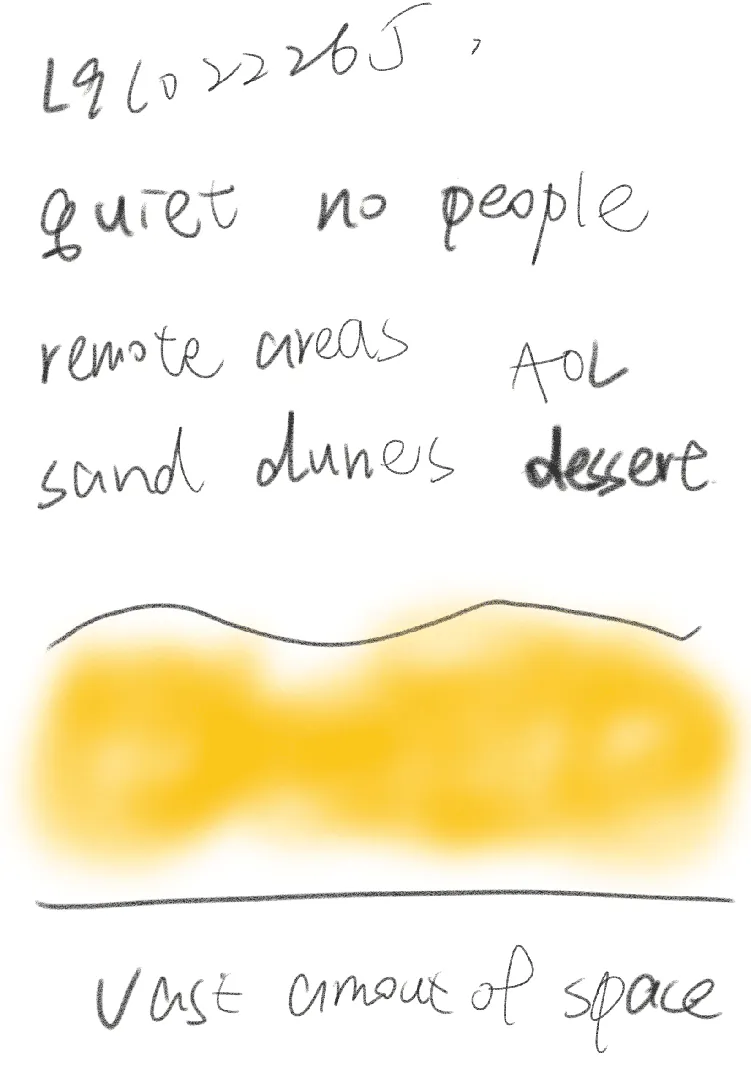 quiet no people
remote areas AOL
sand dunes dessert
Vast amout of space